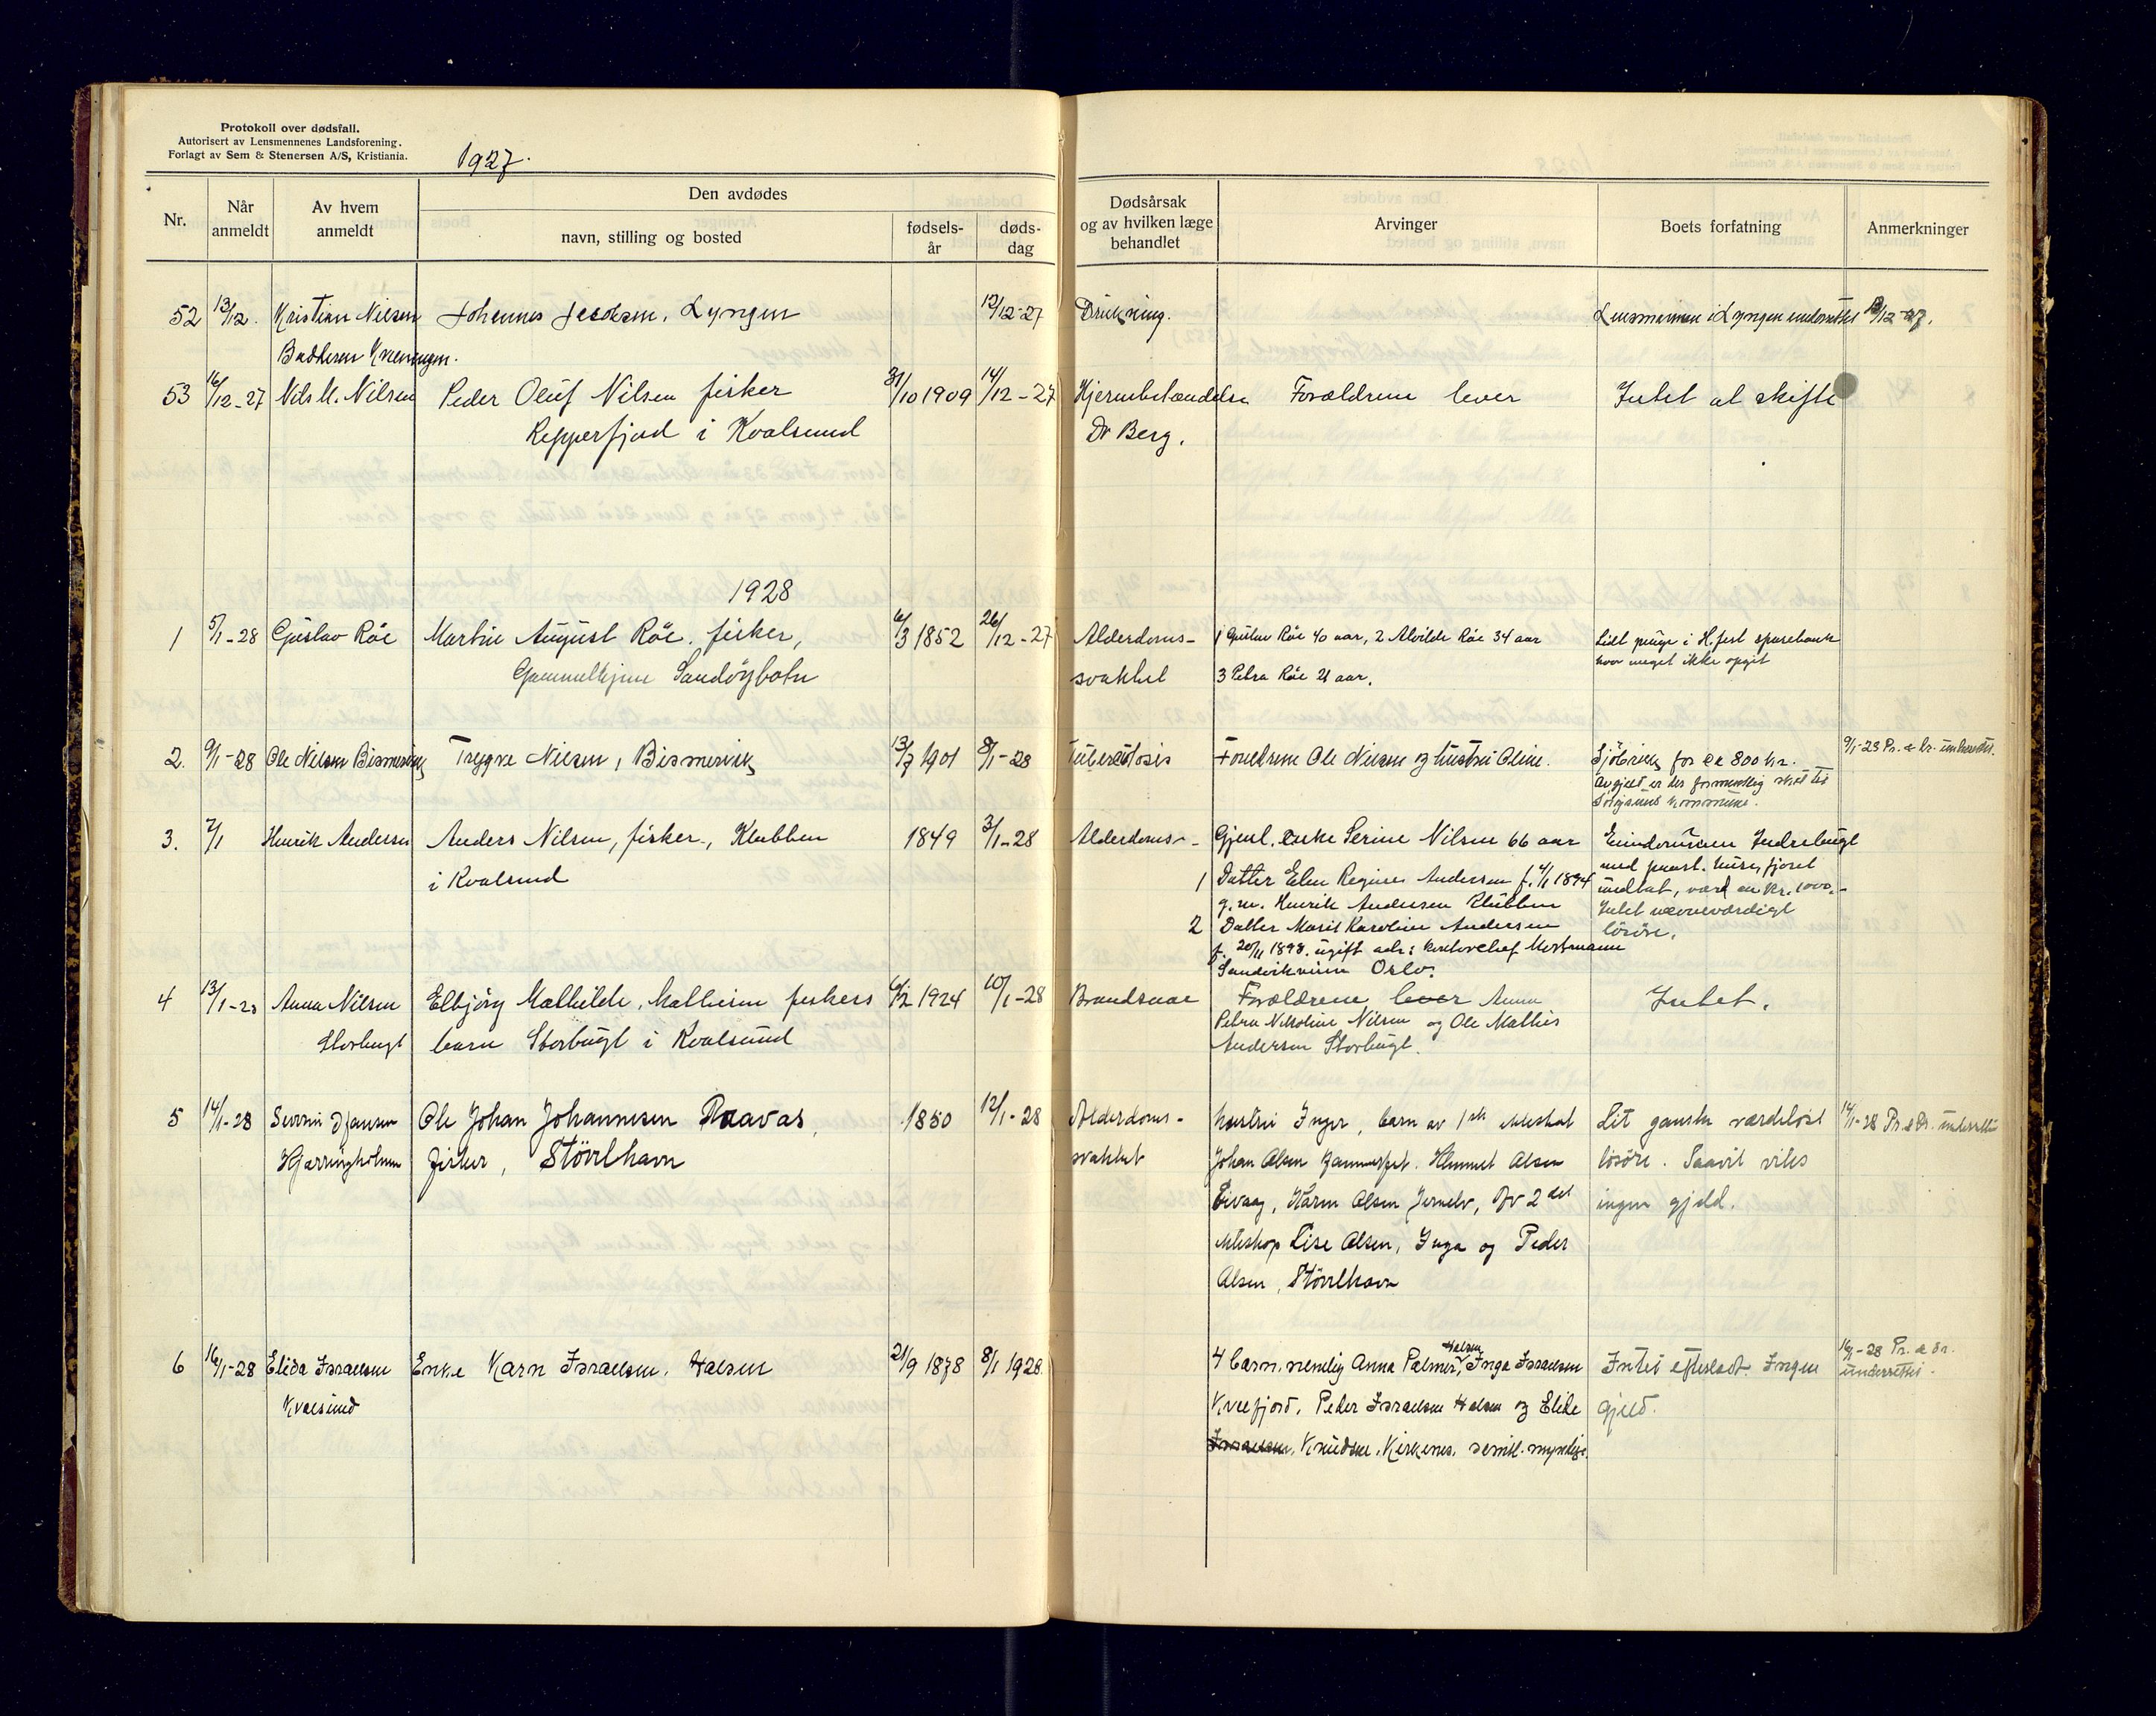 Protokoll over dødsfall.
Autorisert av Lensmennenes Landsforening.
Forlagt av Sem & Stenersen A/S, Kristiania.
1927.
Nr.
Når anmeldt
Av hvem anmeldt
Den avdødes
navn, stilling og bosted
fødsels-år
døds-dag
Dødsårsak og av hvilken læge behandlet
Arvinger
Boets forfatning
Anmerkninger
52 13/12. Kristian Nielsen Johannes Jacobsen, Lyngen 12/12-27 Drukning. Lensmannen i Lyngen underrettet 13/12-27.
53 16/12-27 Nils M. Nilsen Peder Oluf Nilsen fisker 31/10 1909 14/12-27 Hjernebetændelse Forældrene lever Intet at skifte
Repperfjord i Kvalsund Dr Berg.
1928
1 5/1-28 Gustav Röe Martin August Röe, fisker, 6/3 1852 26/12-27 Alderdoms- 1 Gustav Röe 40 aar, 2 Alvilde Röe 34 aar Lidt penge i H.fest sparebank
Sandöybotn svakhet 3 Petra Röe 21 aar. hvor meget ikke opgit
2. 9/1-28 Ole Nilsen Bismervik Trygve Nilsen, Bismervik 13/7 1901 8/1-28 Tuberculosis Foreldrene Ole Nilsen og hustru Oline. Sjöbruk for ca 800 kr. 9/1-28 Pr. & Dr. underrettet.
Av gjeld er der formentlig noget til
Sörøysund kommune.
3. 7/1 Henrik Andersen Anders Nilsen, fisker, Klubben 1849 3/1-28 Alderdoms- Gjenl. enke Serine Nilsen 66 aar Eiendommen Indrebugt
i Kvalsund 1 Datter Elen Regine Andersen f. 4/1 1894 med paast. huse, fjøset
g.m. Henrik Andersen Klubben indtat, værd ca kr. 1000.-
2 Datter Marit Karoline Andersen Intet nævneværdigt
f. 20/11 1898, ugift adr: kontorchef Mortmann løsöre.
Sandviksveien Oslo.
4 13/1-28 Anna Nilsen Elbjörg Mathilde Mathisen fiskers 6/12 1924 10/1-28 Brandsaar Forældrene lever Anna Intet.
Storbugt barn Storbugt i Kvalsund Petra Nikoline Nilsen og Ole Mathis
Andersen Storbugt.
5 14/1-28 Severin Hansen Ole Johan Johannesen Raavas, 1850 12/1-28 Alderdoms- Hustru Inger, barn av 1ste ekteskab Lit ganske værdilöst 14/1-28 Pr. & Dr. underrettet
Kjerringholmen fisker, Störrlhavn svakhet Johan Olsen Hammerfest. Klemmet Olsen lösöre. Saavit vites
Eivaag, Karen Olsen Jernelv, Av 2det ingen gjeld.
ekteskap Lise Olsen, Inga og Peder
Olsen, Störrlhavn
6 16/1-28 Elida Israelsen Enke Karn Israelsen, Halsen 21/9 1878 8/1 1928. 4 barn, nemlig Anna Palmer, Halsen, Inga Israelsen Intet efterladt. Ingen 16/1-28 Pr. & Dr.
Kvalsund Kvefjord, Peder Israelsen Halsen og Elide gjeld. underrettet.
Israelsen, Knudsen, Kirkenes, samtl. myndige.